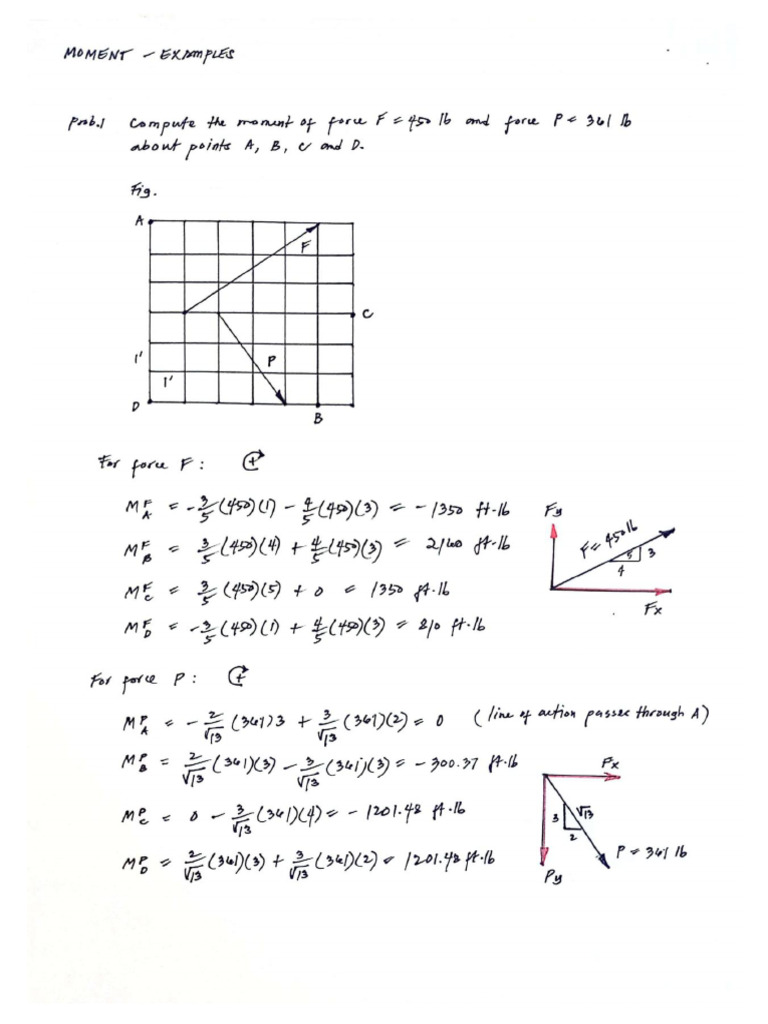 MOMENT - EXAMPLES
Prob.1 Compute the moment of force F = 450 lb and force P = 361 lb
about points A, B, C and D.
Fig.
A
F
C
1'
P
1'
D
B
For force F: +
M_A^F = -3/5(450)(1) - 4/5(450)(3) = -1350 ft-lb
M_B^F = 3/5(450)(4) + 4/5(450)(3) = 2160 ft-lb
M_C^F = 3/5(450)(5) + 0 = 1350 ft-lb
M_D^F = -3/5(450)(1) + 4/5(450)(3) = 810 ft-lb
Fy
F = 450 lb
5 3
4
Fx
For force P: +
M_A^P = -2/√13 (361)3 + 3/√13 (361)(2) = 0 (line of action passes through A)
M_B^P = 2/√13 (361)(3) - 3/√13 (361)(3) = -300.37 ft-lb
M_C^P = 0 - 3/√13 (361)(4) = -1201.48 ft-lb
M_D^P = 2/√13 (361)(3) + 3/√13 (361)(2) = 1201.48 ft-lb
Fx
3 √13
2
P = 361 lb
Py